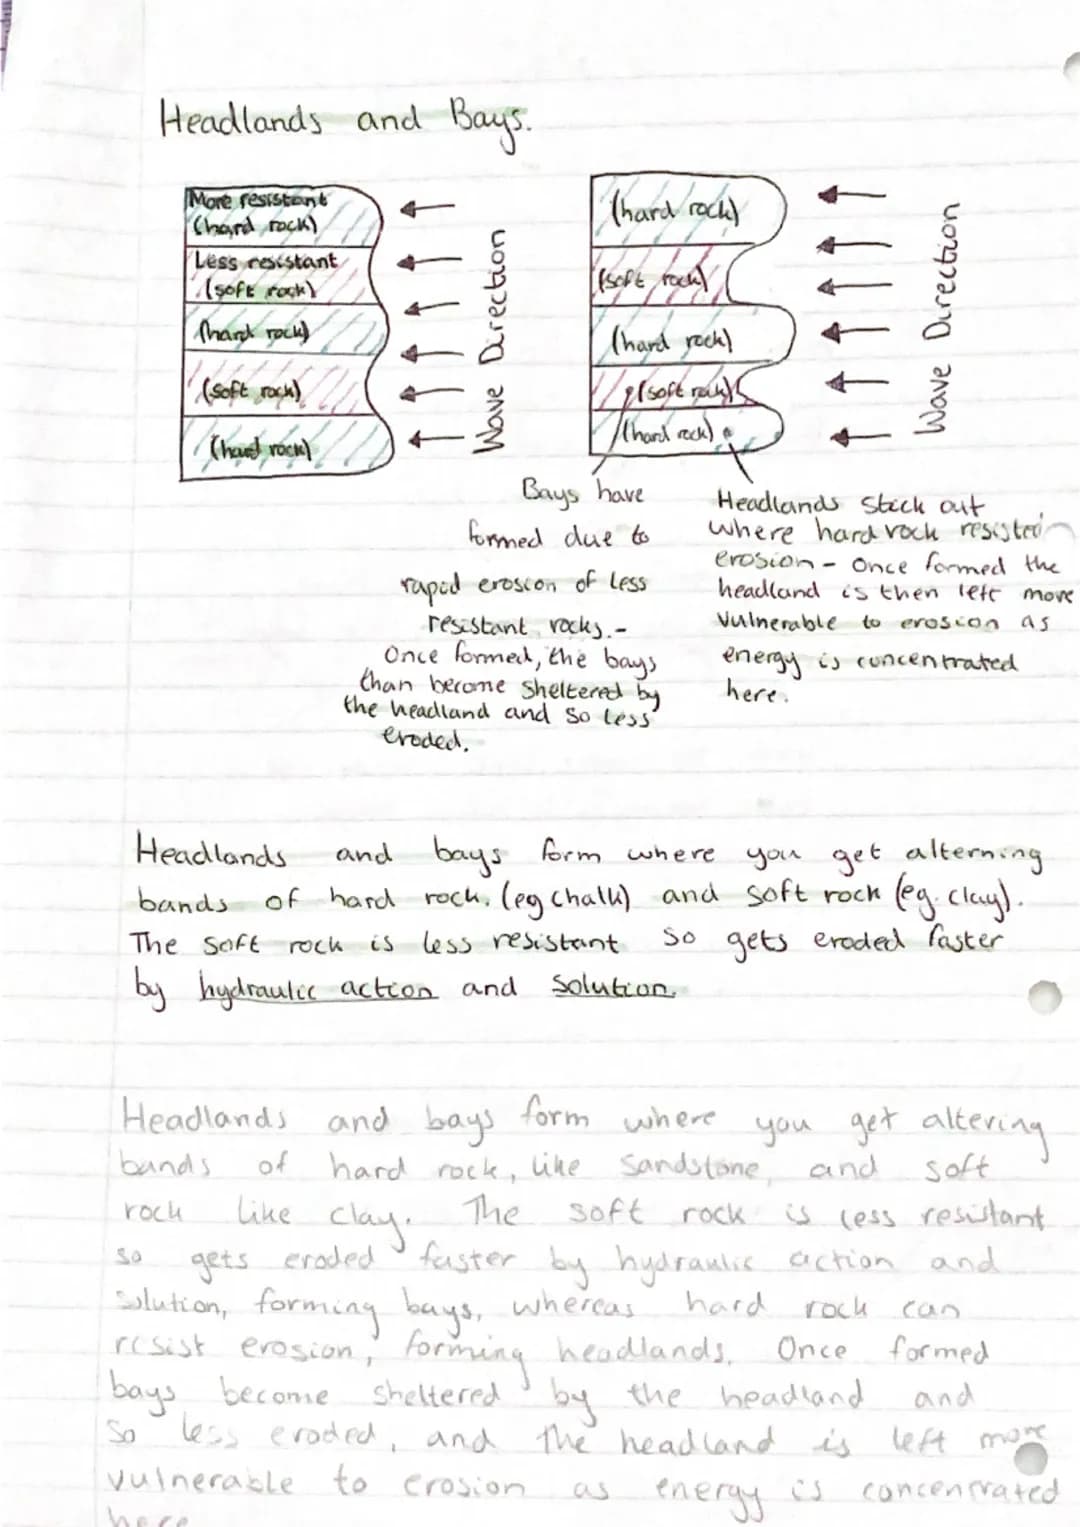 Headlands and Bays.
More resistant
(hard rock)
Less resistant
(soft rock)
(hard rock)
(soft rock)
(hard rock)
Wave Direction
(hard rock)
(soft rock)
(hard rock)
(soft rock)
(hard rock)
Wave Direction
Bays have
formed due to
rapid erosion of less
resistant rocks.-
Once formed, the bays
than become sheltered by
the headland and so less
eroded.
Headlands stick out
where hard rock resisted
erosion - Once formed the
headland is then left more
vulnerable to erosion as
energy is concentrated
here.
Headlands and bays form where you get alterning
bands of hard rock. (eg chalk) and soft rock (eg. clay).
The soft rock is less resistant so gets eroded faster
by hydraulic action and solution.
Headlands and bays form where you get altering
bands of hard rock, like sandstone, and soft
rock like clay. The soft rock is less resistant
so gets eroded faster by hydraulic action and
solution, forming bays, whereas hard rock can
resist erosion, forming headlands. Once formed
bays become sheltered by the headland and
so less eroded, and the headland is left more
vulnerable to erosion as energy is concentrated
here